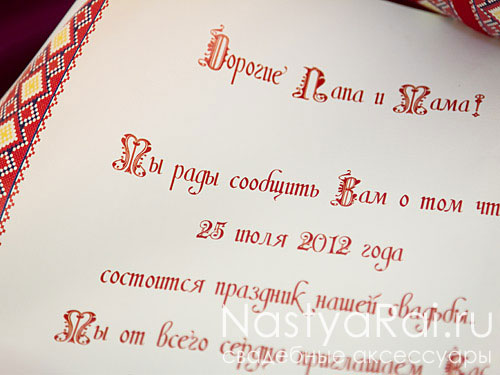 Дорогие Папа и Мама!
Мы рады сообщить Вам о том чт
25 июля 2012 года
состоится праздник нашей свадьбы
Мы от всего сердца приглашаем Вас
NastyaRai.ru
свадебные аксессуары